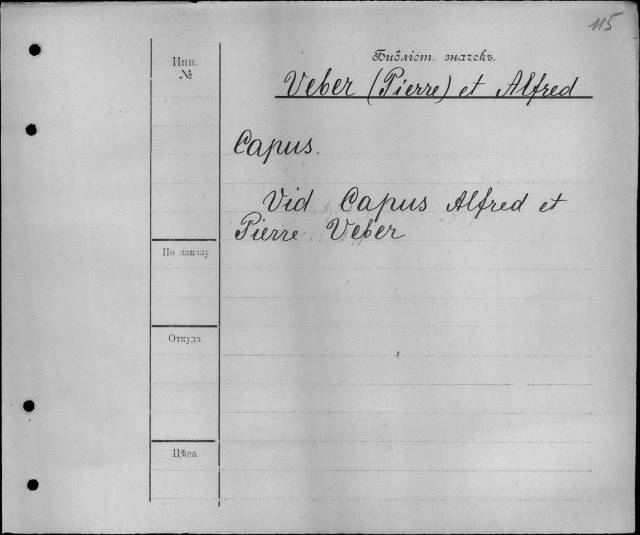 115
Библіот. значекъ.
Инв.
№
Veber (Pierre) et Alfred
Capus.
Vid Capus Alfred et
Pierre Veber
По заказу
Откуда
Цѣна